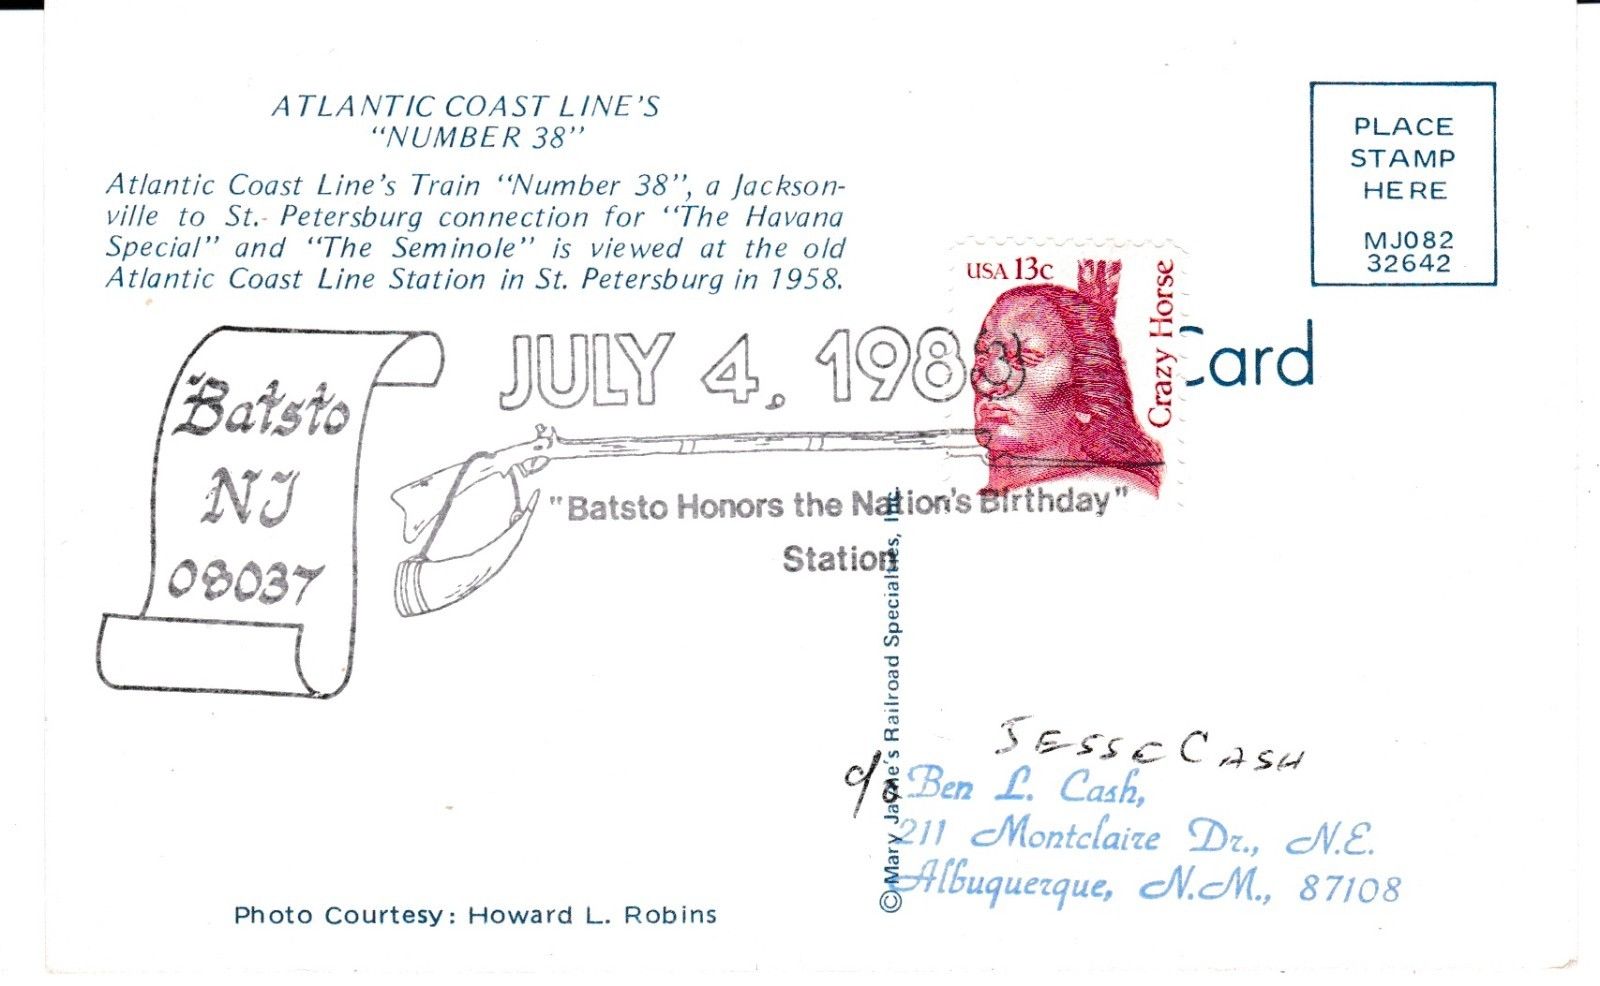 ATLANTIC COAST LINE'S
"NUMBER 38"
Atlantic Coast Line's Train "Number 38", a Jackson-
ville to St. Petersburg connection for "The Havana
Special" and "The Seminole" is viewed at the old
Atlantic Coast Line Station in St. Petersburg in 1958.
PLACE
STAMP
HERE
MJ082
32642
USA 13c
Crazy Horse
Card
JULY 4, 1983
Batsto
NJ
08037
"Batsto Honors the Nation's Birthday"
Station
© Mary Jane's Railroad Specialties, Inc.
JESSE CASH
c/o Ben L. Cash,
211 Montclaire Dr., N.E.
Albuquerque, N.M., 87108
Photo Courtesy: Howard L. Robins